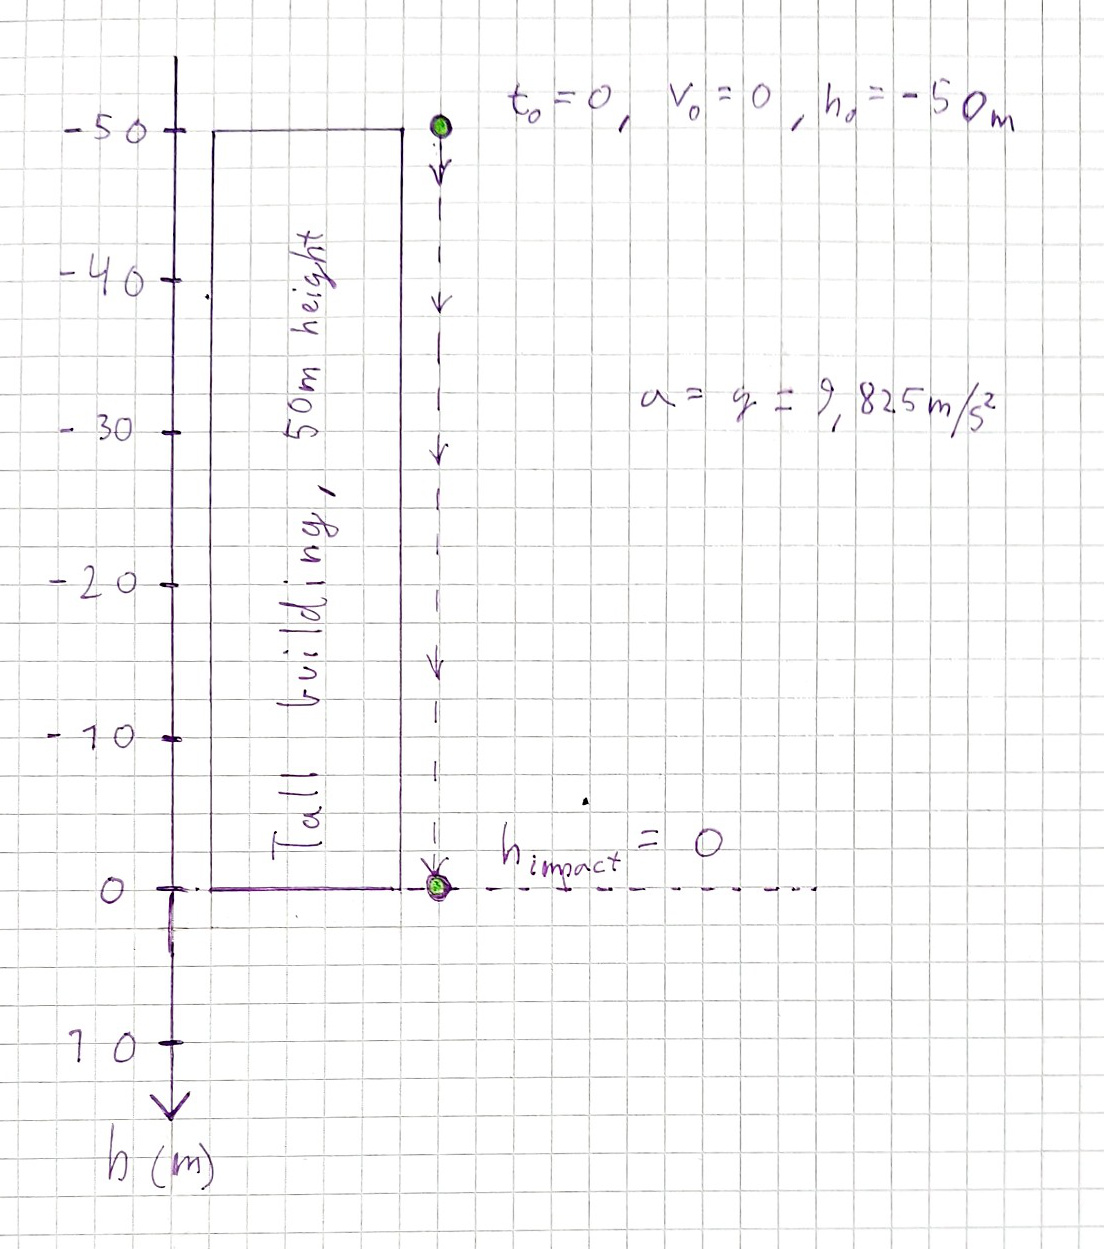 t₀ = 0, v₀ = 0, h₀ = -50m
-50
-40
-30
-20
-10
0
10
h (m)
Tall building, 50m height
a = g = 9,825m/s²
h_impact = 0